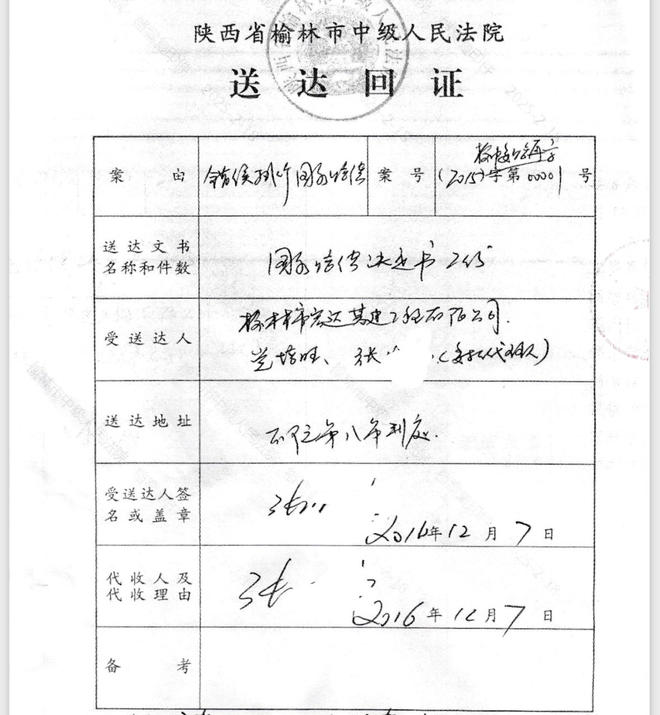 陕西省榆林市中级人民法院
送达回证
案由 错误执行国家赔偿 案号 (2015) 字第00001号
送达文书名称和件数 国家赔偿决定书二份
受送达人 榆林市宏达基建工程有限公司.
张 (委托代理人)
送达地址 第八审判庭.
受送达人签名或盖章 张
2016年12月7日
代收人及代收理由 张
2016年12月7日
备考